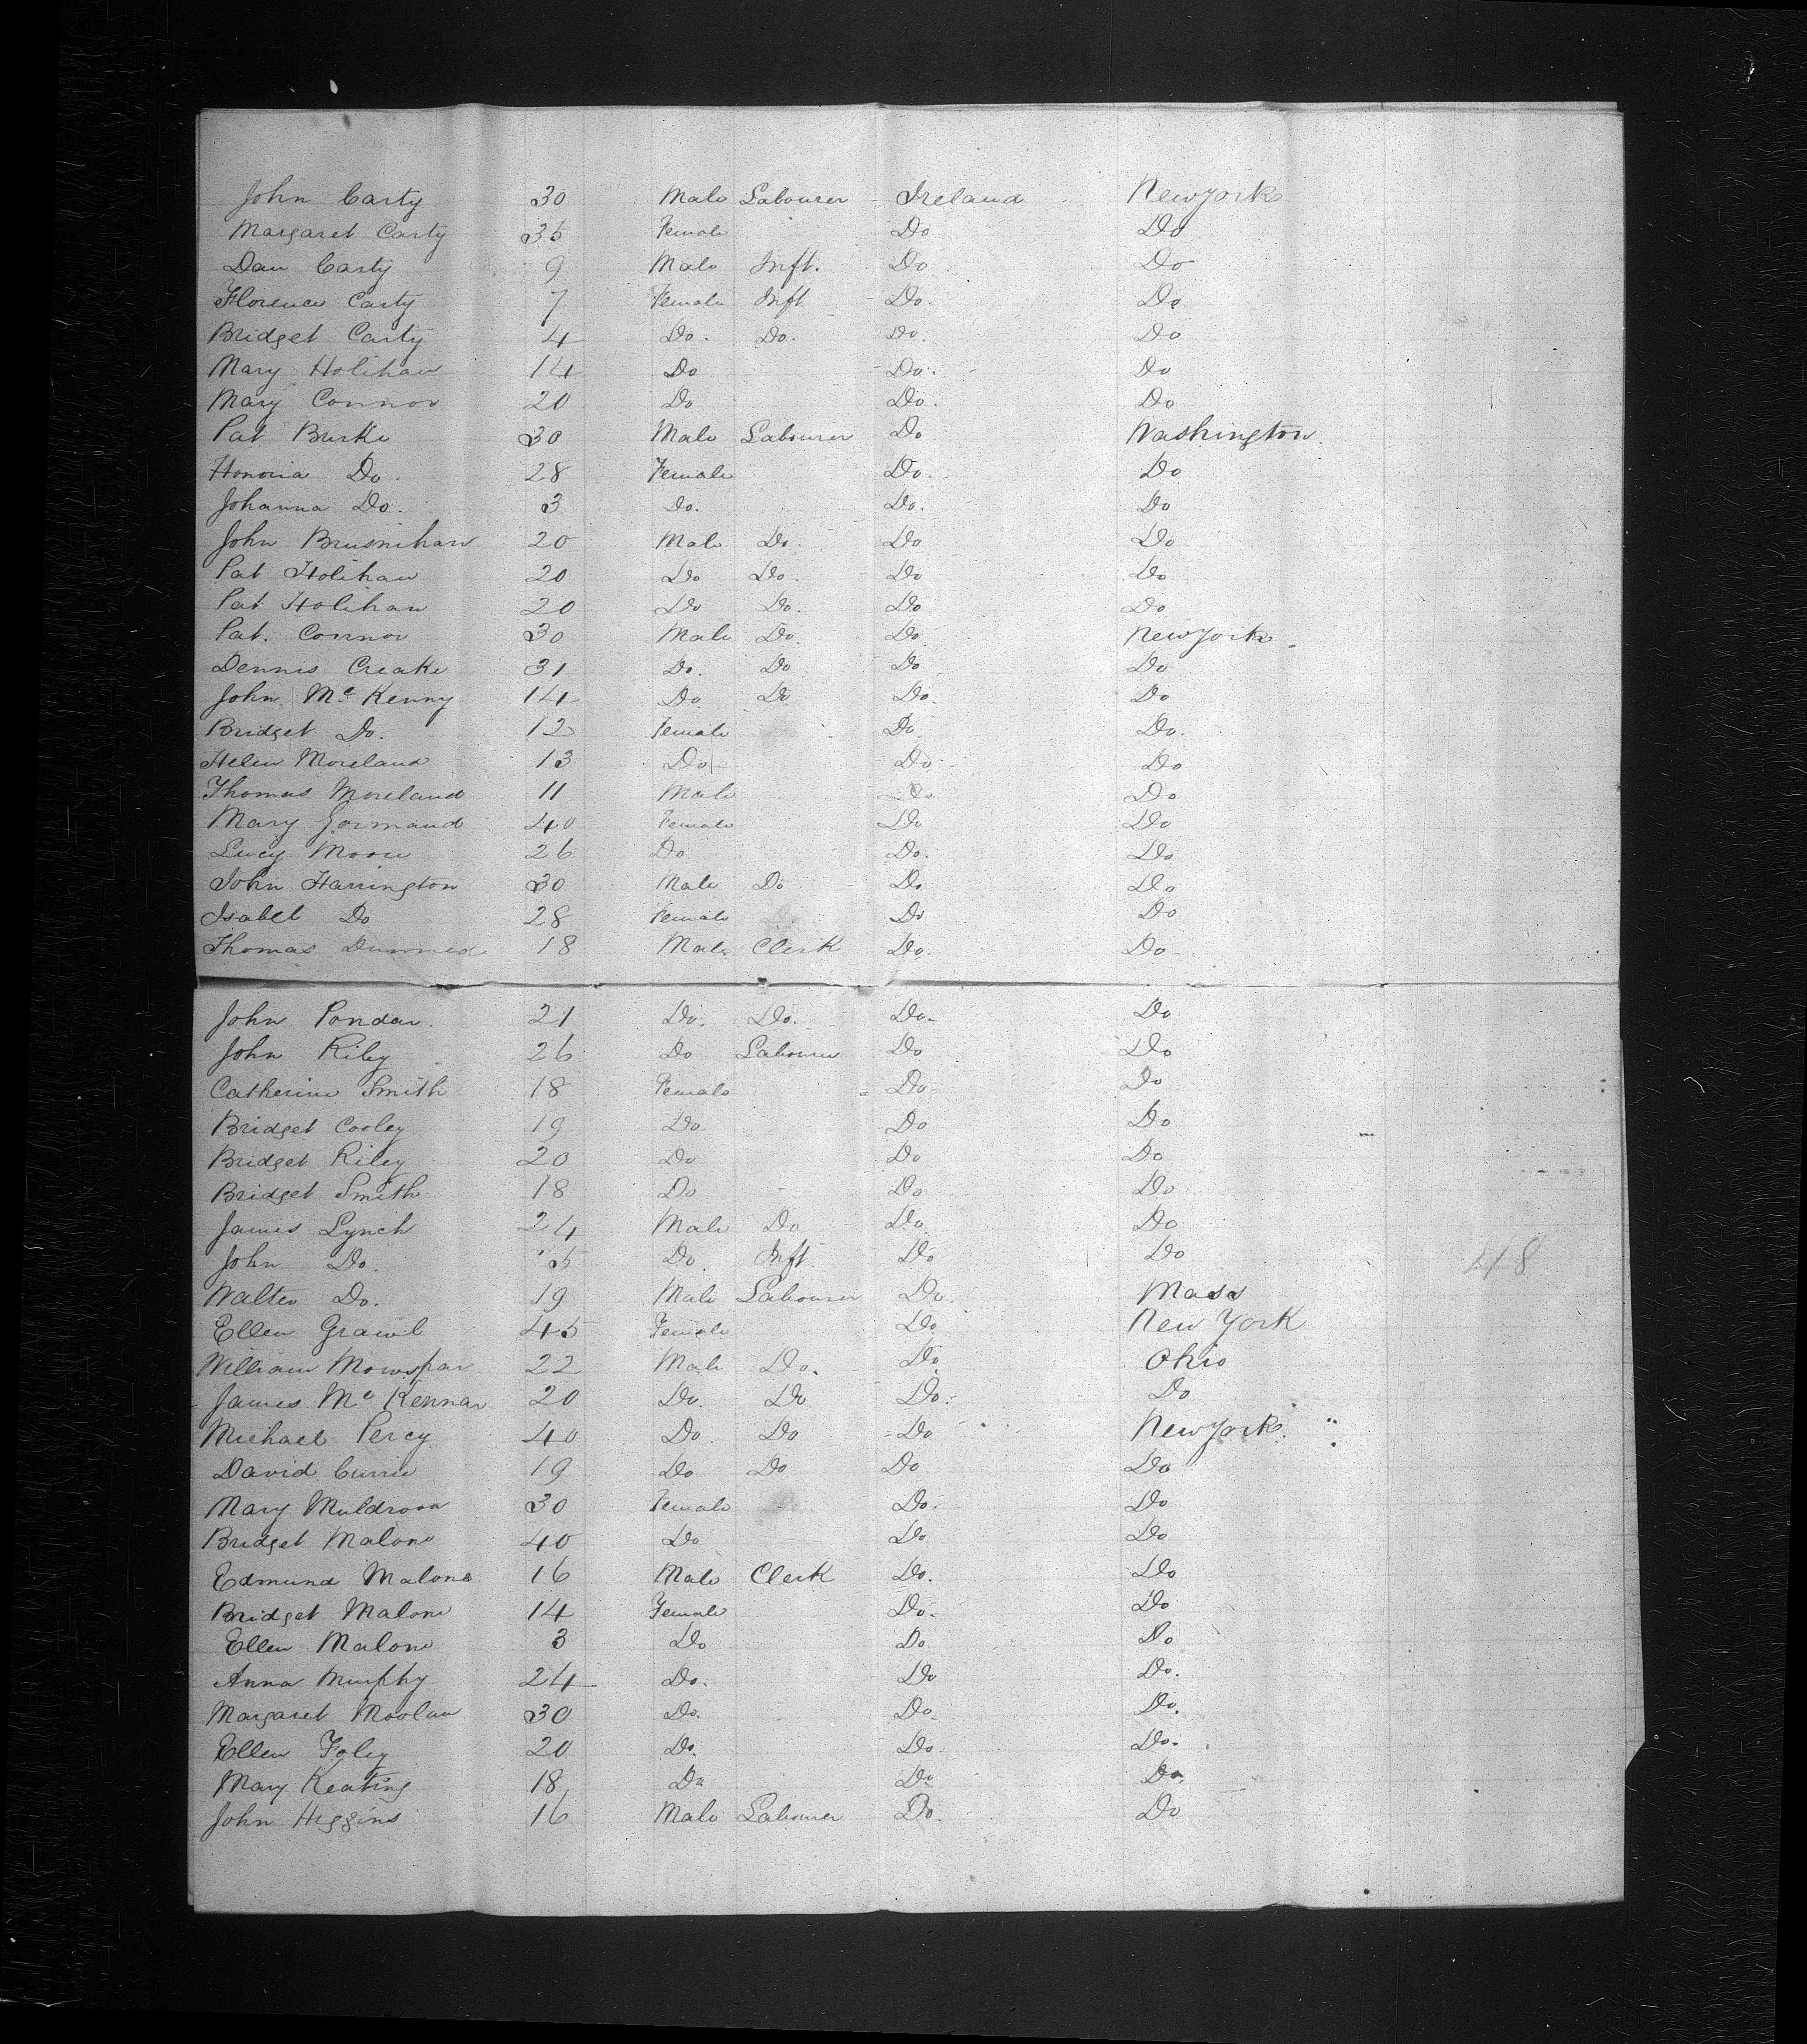 John Carty 30 Male Labourer Ireland New York
Margaret Carty 35 Female Do Do
Dan Carty 9 Male Inft. Do Do
Florence Carty 7 Female Inft Do. Do
Bridget Carty 4 Do. Do. Do. Do
Mary Holihan 14 Do Do. Do
Mary Connor 20 Do Do. Do
Pat Burke 30 Male Labourer Do Washington.
Honoria Do. 28 Female Do. Do
Johanna Do. 3 Do. Do. Do
John Brusnihan 20 Male Do. Do Do
Pat Holihan 20 Do Do. Do Do
Pat Holihan 20 Do Do. Do Do
Pat. Connor 30 Male Do. Do New York
Dennis Creake 31 Do. Do Do Do
John Mc Kenny 14 Do. Do Do. Do
Bridget Do. 12 Female Do. Do.
Helen Moreland 13 Do Do Do
Thomas Moreland 11 Male Do. Do
Mary Gormand 40 Female Do Do
Lucy Moore 26 Do Do. Do
John Harrington 30 Male Do Do Do
Isabel Do 28 Female Do Do
Thomas 18 Male Clerk Do. Do
John Pondar. 21 Do. Do. Do. Do
John Riley 26 Do Labourer Do Do
Catherine Smith 18 Female Do Do
Bridget Cooley 19 Do. Do Do
Bridget Riley 20 Do Do Do
Bridget Smith 18 Do Do Do
James Lynch 24 Male Do Do Do
John Do. 5 Do. Inft. Do Do
48
Walter Do. 19 Male Labourer Do. Mass
Ellen 45 Female Do New York
William 22 Male Do. Do Ohio
James Mc Kennar 20 Do. Do Do. Do
Michael Percy 40 Do Do Do New York.
David Currie 19 Do Do Do Do
Mary Muldroon 30 Female Do. Do
Bridget Malone 40 Do Do Do
Edmund Malone 16 Male Clerk Do. Do
Bridget Malone 14 Female Do. Do
Ellen Malone 3 Do Do Do
Anna Murphy 24 Do. Do Do.
Margaret Moolan 30 Do. Do. Do.
Ellen Foley 20 Do. Do. Do.
Mary Keating 18 Do Do Do.
John Higgins 16 Male Labourer Do. Do